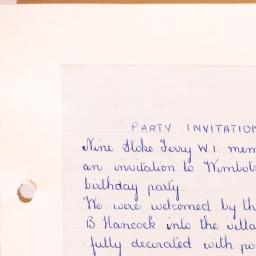 PARTY INVITATION
Nine Stoke Ferry W.I. mem
an invitation to Wimbot
birthday party.
We were welcomed by th
B Hancock into the villa
fully decorated with